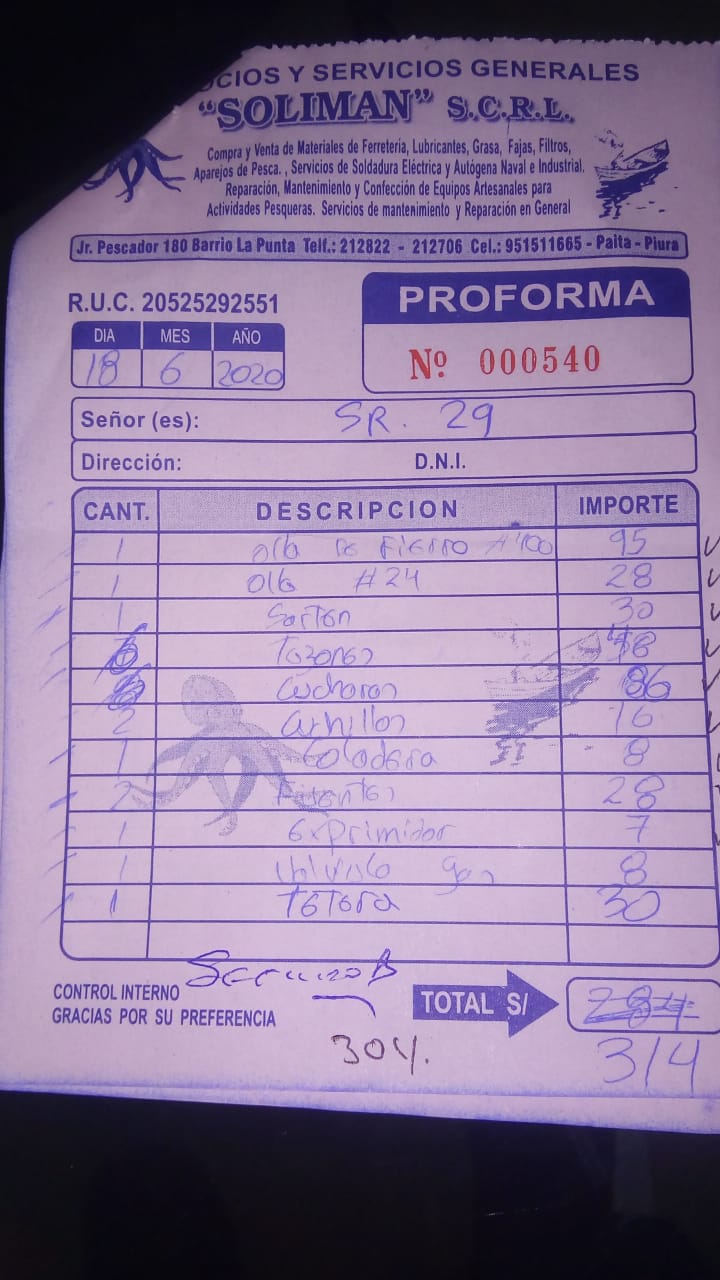 OCIOS Y SERVICIOS GENERALES
"SOLIMAN" S.C.R.L.
Compra y Venta de Materiales de Ferretería, Lubricantes, Grasa, Fajas, Filtros,
Aparejos de Pesca. , Servicios de Soldadura Eléctrica y Autógena Naval e Industrial.
Reparación, Mantenimiento y Confección de Equipos Artesanales para
Actividades Pesqueras. Servicios de mantenimiento y Reparación en General
Jr. Pescador 180 Barrio La Punta Telf.: 212822 - 212706 Cel.: 951511665 - Paita - Piura
R.U.C. 20525292551
PROFORMA
DIA MES AÑO
Nº 000540
18 6 2020
Señor (es): SR. 29
Dirección: D.N.I.
CANT. DESCRIPCION IMPORTE
1 olla de Fierro # 95
1 olla #24 28
1 Sarten 30
Tazones
Cucharas
2 Cuchillos 16
1 Coladera 8
2 Fuentes 28
1 exprimidor 7
1 gas 8
1 TETERA 30
CONTROL INTERNO
GRACIAS POR SU PREFERENCIA
TOTAL S/ 284
314